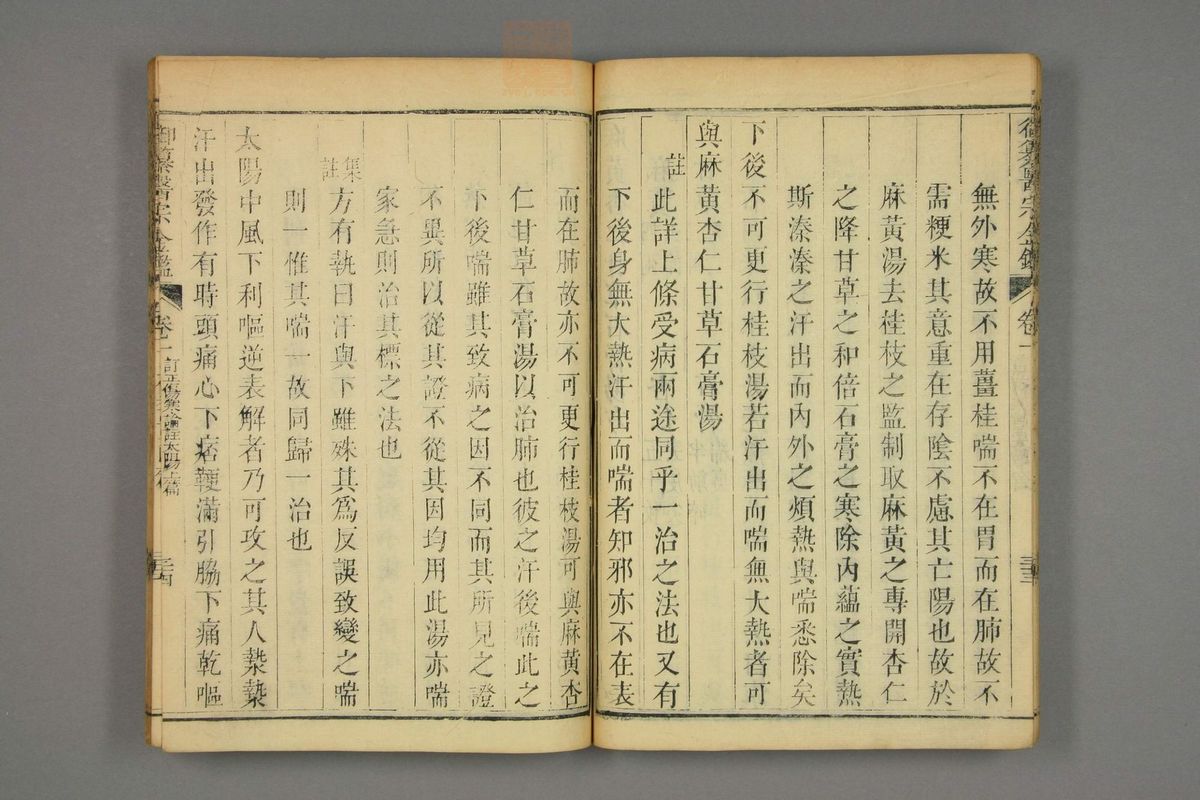 無外寒故不用薑桂喘不在胃而在肺故不
需粳米其意重在存陰不慮其亡陽也故於
麻黃湯去桂枝之監制取麻黃之專開杏仁
之降甘草之和倍石膏之寒除內蘊之實熱
斯溱溱之汗出而內外之煩熱與喘悉除矣
下後不可更行桂枝湯若汗出而喘無大熱者可
與麻黃杏仁甘草石膏湯
註此詳上條受病兩途同乎一治之法也又有
下後身無大熱汗出而喘者知邪亦不在表
而在肺故亦不可更行桂枝湯可與麻黃杏
仁甘草石膏湯以治肺也彼之汗後喘此之
下後喘雖其致病之因不同而其所見之證
不異所以從其證不從其因均用此湯亦喘
家急則治其標之法也
集註方有執曰汗與下雖殊其爲反誤致變之喘
則一惟其喘一故同歸一治也
太陽中風下利嘔逆表解者乃可攻之其人漐漐
汗出發作有時頭痛心下痞鞕滿引脇下痛乾嘔
卷一 訂正傷寒論註太陽上篇